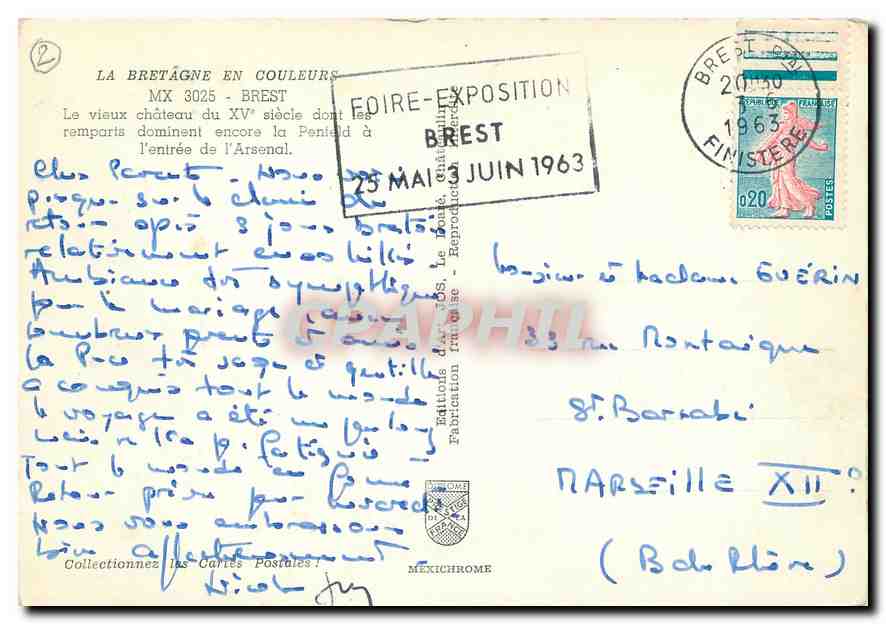 2
LA BRETAGNE EN COULEURS
MX 3025 - BREST
Le vieux château du XVe siècle dont les
remparts dominent encore la Penfeld à
l'entrée de l'Arsenal.
Chers Parents - Nous
presque sur le chemin du
retour après 3 jours
relativement
Ambiance très sympathique
pour le mariage
nombreux parents et amis
très sage et gentille
a conquis tout le monde
le voyage a été un peu long
fatiguée
Tout le monde en forme
Retour prévu pour mercredi
Nous vous embrassons
bien affectueusement
Nicole
Collectionnez les Cartes Postales !
FOIRE-EXPOSITION
BREST
25 MAI-3 JUIN 1963
Editions d'Art JOS, Le Doaré, Châteaulin
Fabrication française - Reproduction interdite
DIPLOME
PRESTIGE
DE LA
FRANCE
MEXICHROME
BREST Pal
20H30
1963
FINISTERE
REPUBLIQUE FRANÇAISE
0,20
POSTES
Monsieur et Madame GUÉRIN
33 rue Montaigne
St. Barnabé
MARSEILLE XII°
(B du Rhône)
CPAPHIL